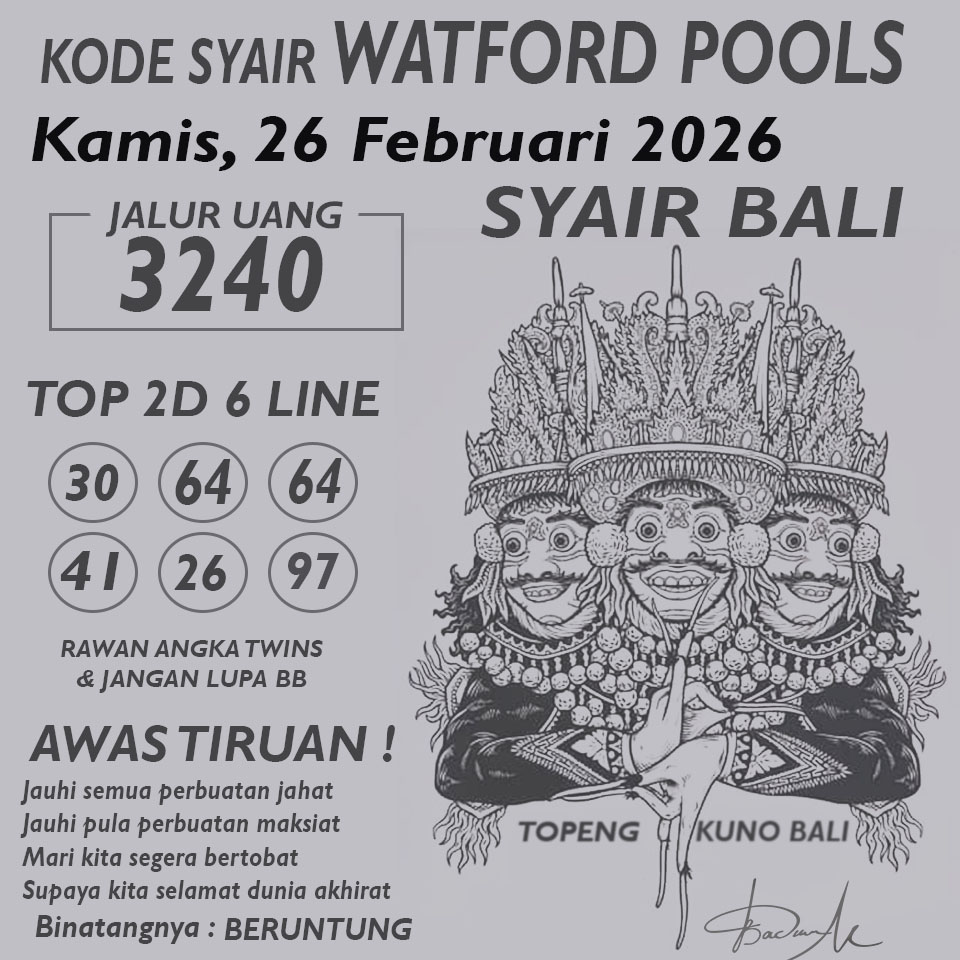 KODE SYAIR WATFORD POOLS
Kamis, 26 Februari 2026
SYAIR BALI
JALUR UANG
3240
TOP 2D 6 LINE
30 64 64
41 26 97
RAWAN ANGKA TWINS
& JANGAN LUPA BB
AWAS TIRUAN !
Jauhi semua perbuatan jahat
Jauhi pula perbuatan maksiat
Mari kita segera bertobat
Supaya kita selamat dunia akhirat
Binatangnya : BERUNTUNG
TOPENG KUNO BALI